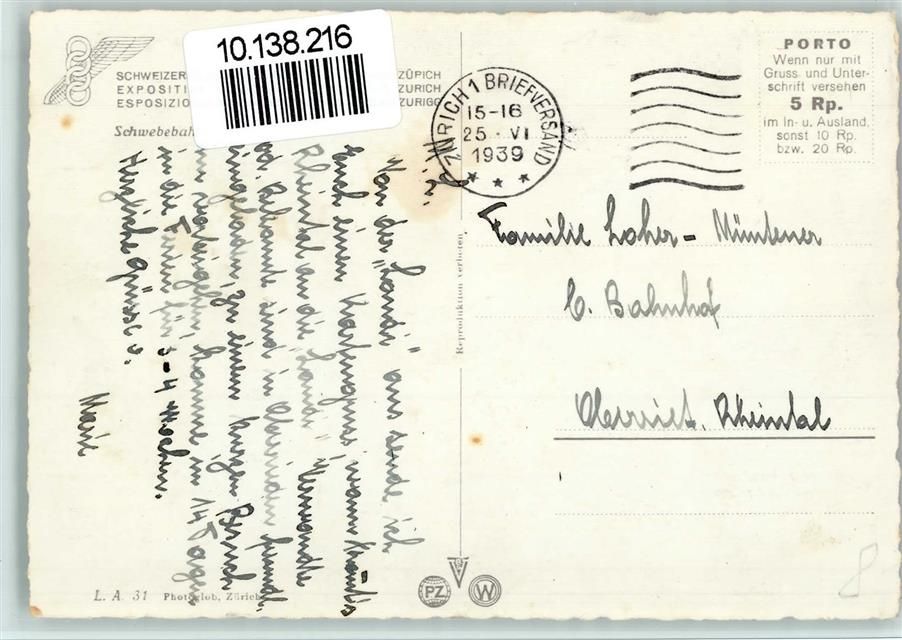 10.138.216
SCHWEIZER
ZÜRICH
EXPOSITI
ZURICH
ESPOSIZIO
ZURIGO
Schwebebah
ZÜRICH 1 BRIEFVERSAND
15-16
25. VI
1939
PORTO
Wenn nur mit
Gruss und Unter-
schrift versehen
5 Rp.
im In- u. Ausland,
sonst 10 Rp.
bzw. 20 Rp.
Von der "Landi" aus sende ich
Euch einen Kartengruss,
Rheintal an die "Landi", Verwandte
od. Bekannte sind in
eingeladen, zu einem kurzen Besuch
komme in 14 Tagen
in die Ferien für 3-4 Wochen.
Herzliche Grüsse v.
Marie
Familie Loher-Müntener
b. Bahnhof
Oberriet, Rheintal
Reproduktion verboten.
L. A. 31 Photoglob, Zürich
PZ
W
8